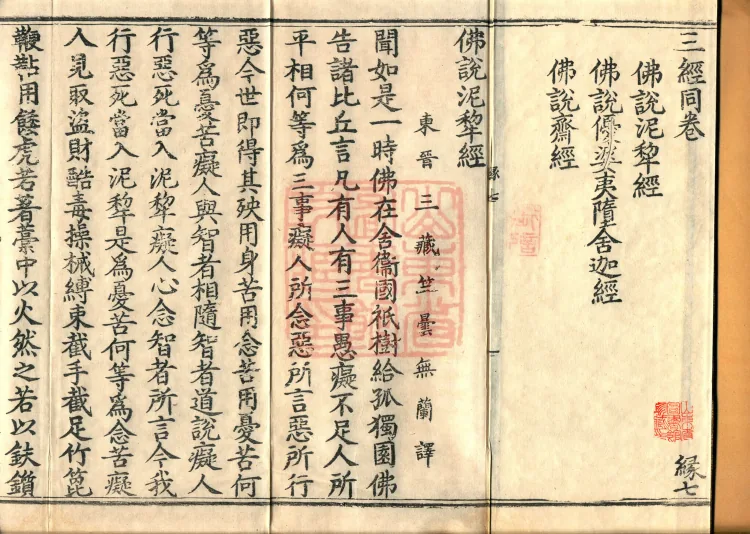 三經同卷
佛說泥犂經
佛說優婆夷墮舍迦經
佛說齋經
緣七
緣七
佛說泥犂經
東晉三藏竺曇無蘭譯
聞如是一時佛在舍衞國祇樹給孤獨園佛
告諸比丘言凡有人有三事愚癡不足人所
平相何等爲三事癡人所念惡所言惡所行
惡今世即得其殃用身苦用念苦用憂苦何
等爲憂苦癡人與智者相隨智者道說癡人
行惡死當入泥犂癡人心念智者所言今我
行惡死當入泥犂是爲憂苦何等爲念苦癡
人見取盜財酷毒操械縛束截手截足竹篦
鞭㸃用餧虎若著藁中以火然之若以鈇鑕